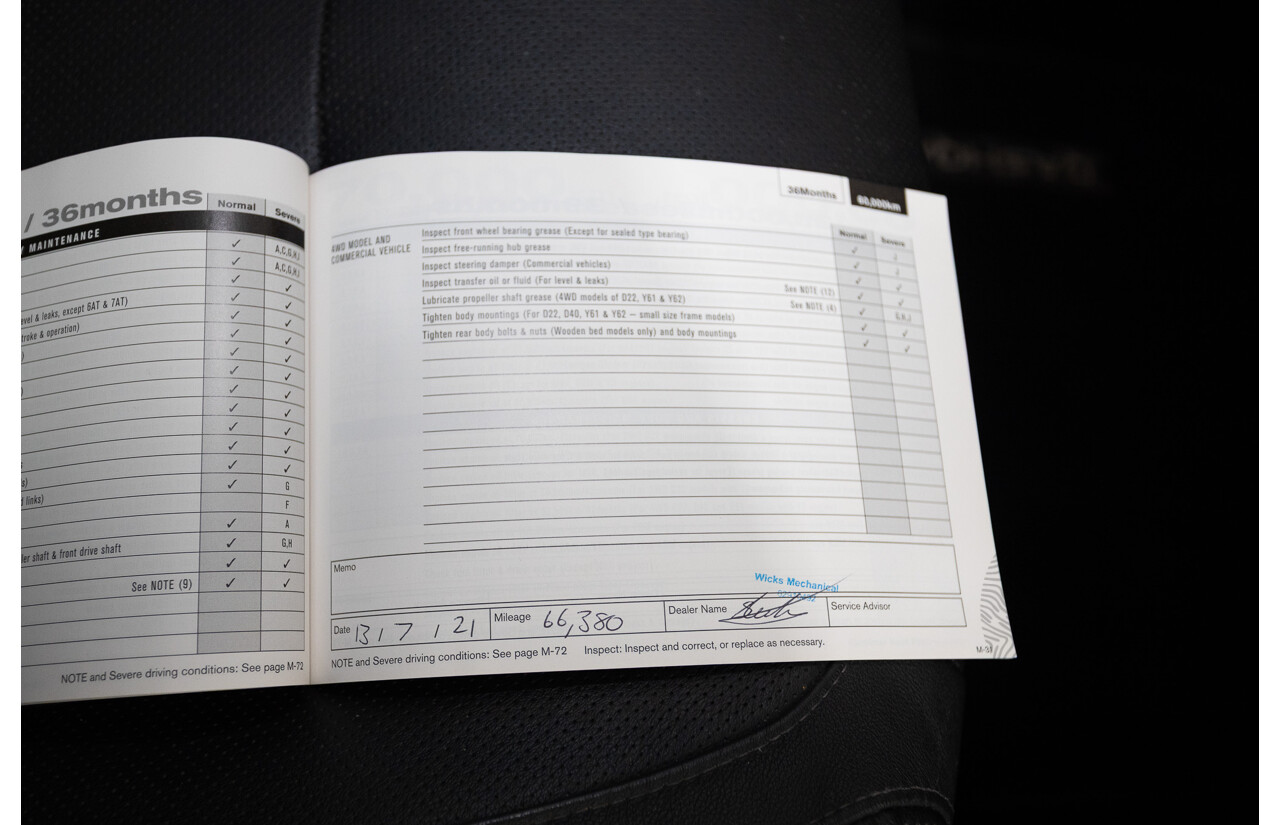 / 36months
Normal
Severe
/ MAINTENANCE
✓ A,C,G,H,I
✓ A,C,G,H,I
✓ ✓
evel & leaks, except 6AT & 7AT) ✓ ✓
troke & operation) ✓ ✓
) ✓ ✓
✓ ✓
) ✓ ✓
✓ ✓
✓ ✓
✓ ✓
✓ ✓
s) ✓ ✓
d links) ✓ G
F
✓ A
ler shaft & front drive shaft ✓ G,H
✓ ✓
See NOTE (9) ✓ ✓
NOTE and Severe driving conditions: See page M-72
36Months
60,000km
Normal
Severe
4WD MODEL AND
COMMERCIAL VEHICLE
Inspect front wheel bearing grease (Except for sealed type bearing)
Inspect free-running hub grease
Inspect steering damper (Commercial vehicles)
Inspect transfer oil or fluid (For level & leaks) See NOTE (12)
Lubricate propeller shaft grease (4WD models of D22, Y61 & Y62) See NOTE (4) G,H,J
Tighten body mountings (For D22, D40, Y61 & Y62 – small size frame models)
Tighten rear body bolts & nuts (Wooden bed models only) and body mountings
Memo
Wicks Mechanical
Date 13 / 7 / 21 Mileage 66,380 Dealer Name Service Advisor
NOTE and Severe driving conditions: See page M-72 Inspect: Inspect and correct, or replace as necessary.